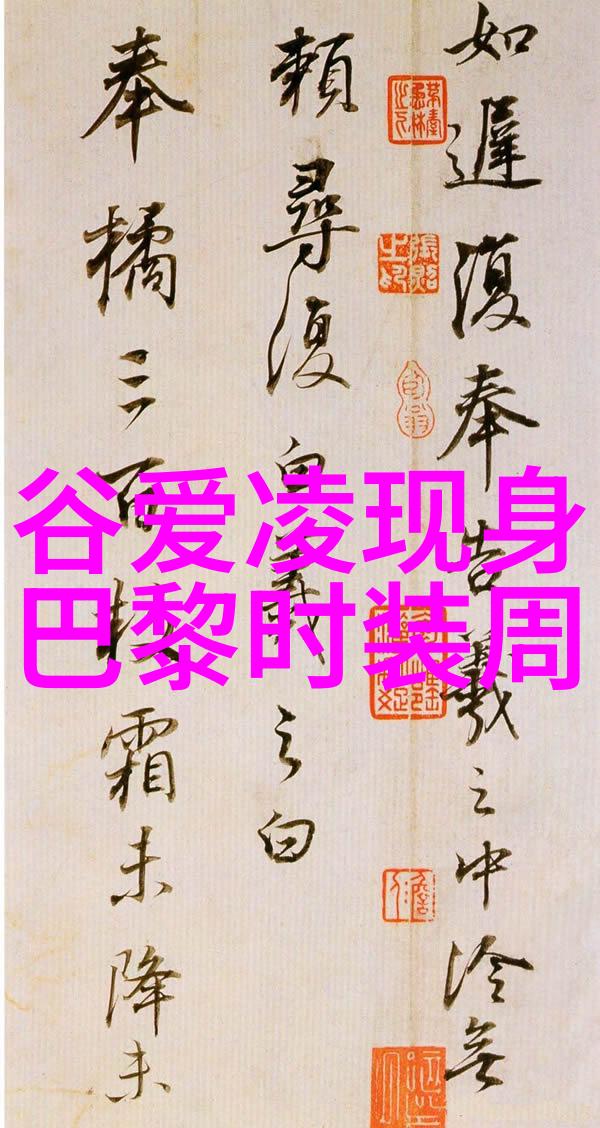 谷爱凌现身
巴黎时装周
如遲復奉告羲之中冷無
賴尋復白羲之白
奉橘三百枚霜未降未